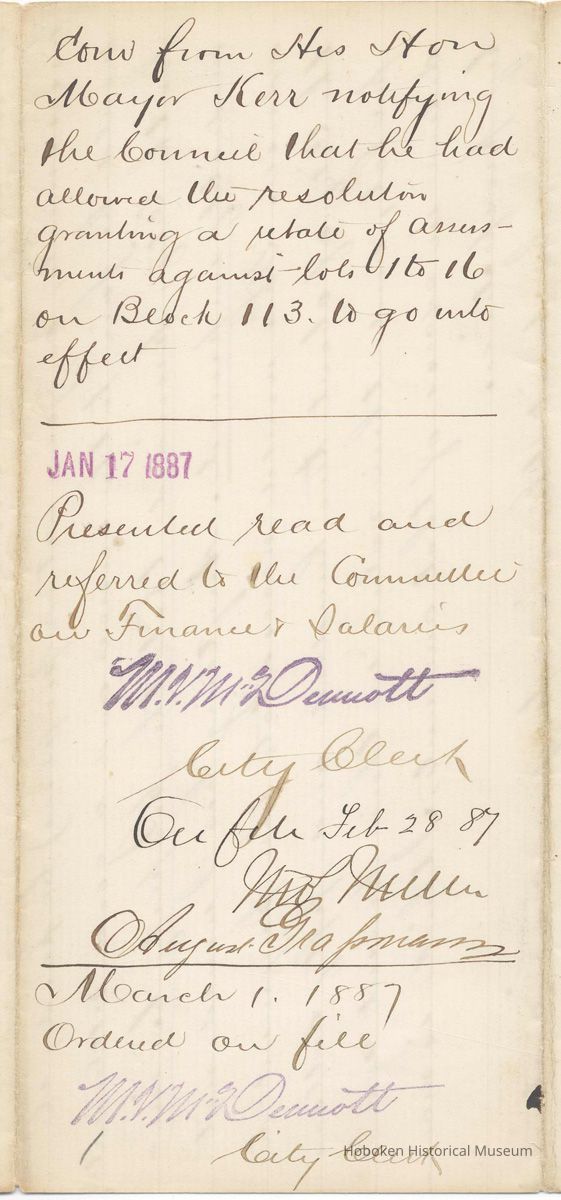 Com from His Hon
Mayor Kerr notifying
the Council that he had
allowed the resolution
granting a rebate of assess-
ments against lots 1 to 16
on Block 113. to go into
effect
JAN 17 1887
Presented read and
referred to the Committee
on Finance & Salaries
M.V. McDermott
City Clerk
On file Feb 28 87
Miller
August Grassmann
March 1. 1887
Ordered on file
M.V. McDermott
City Clerk
Hoboken Historical Museum